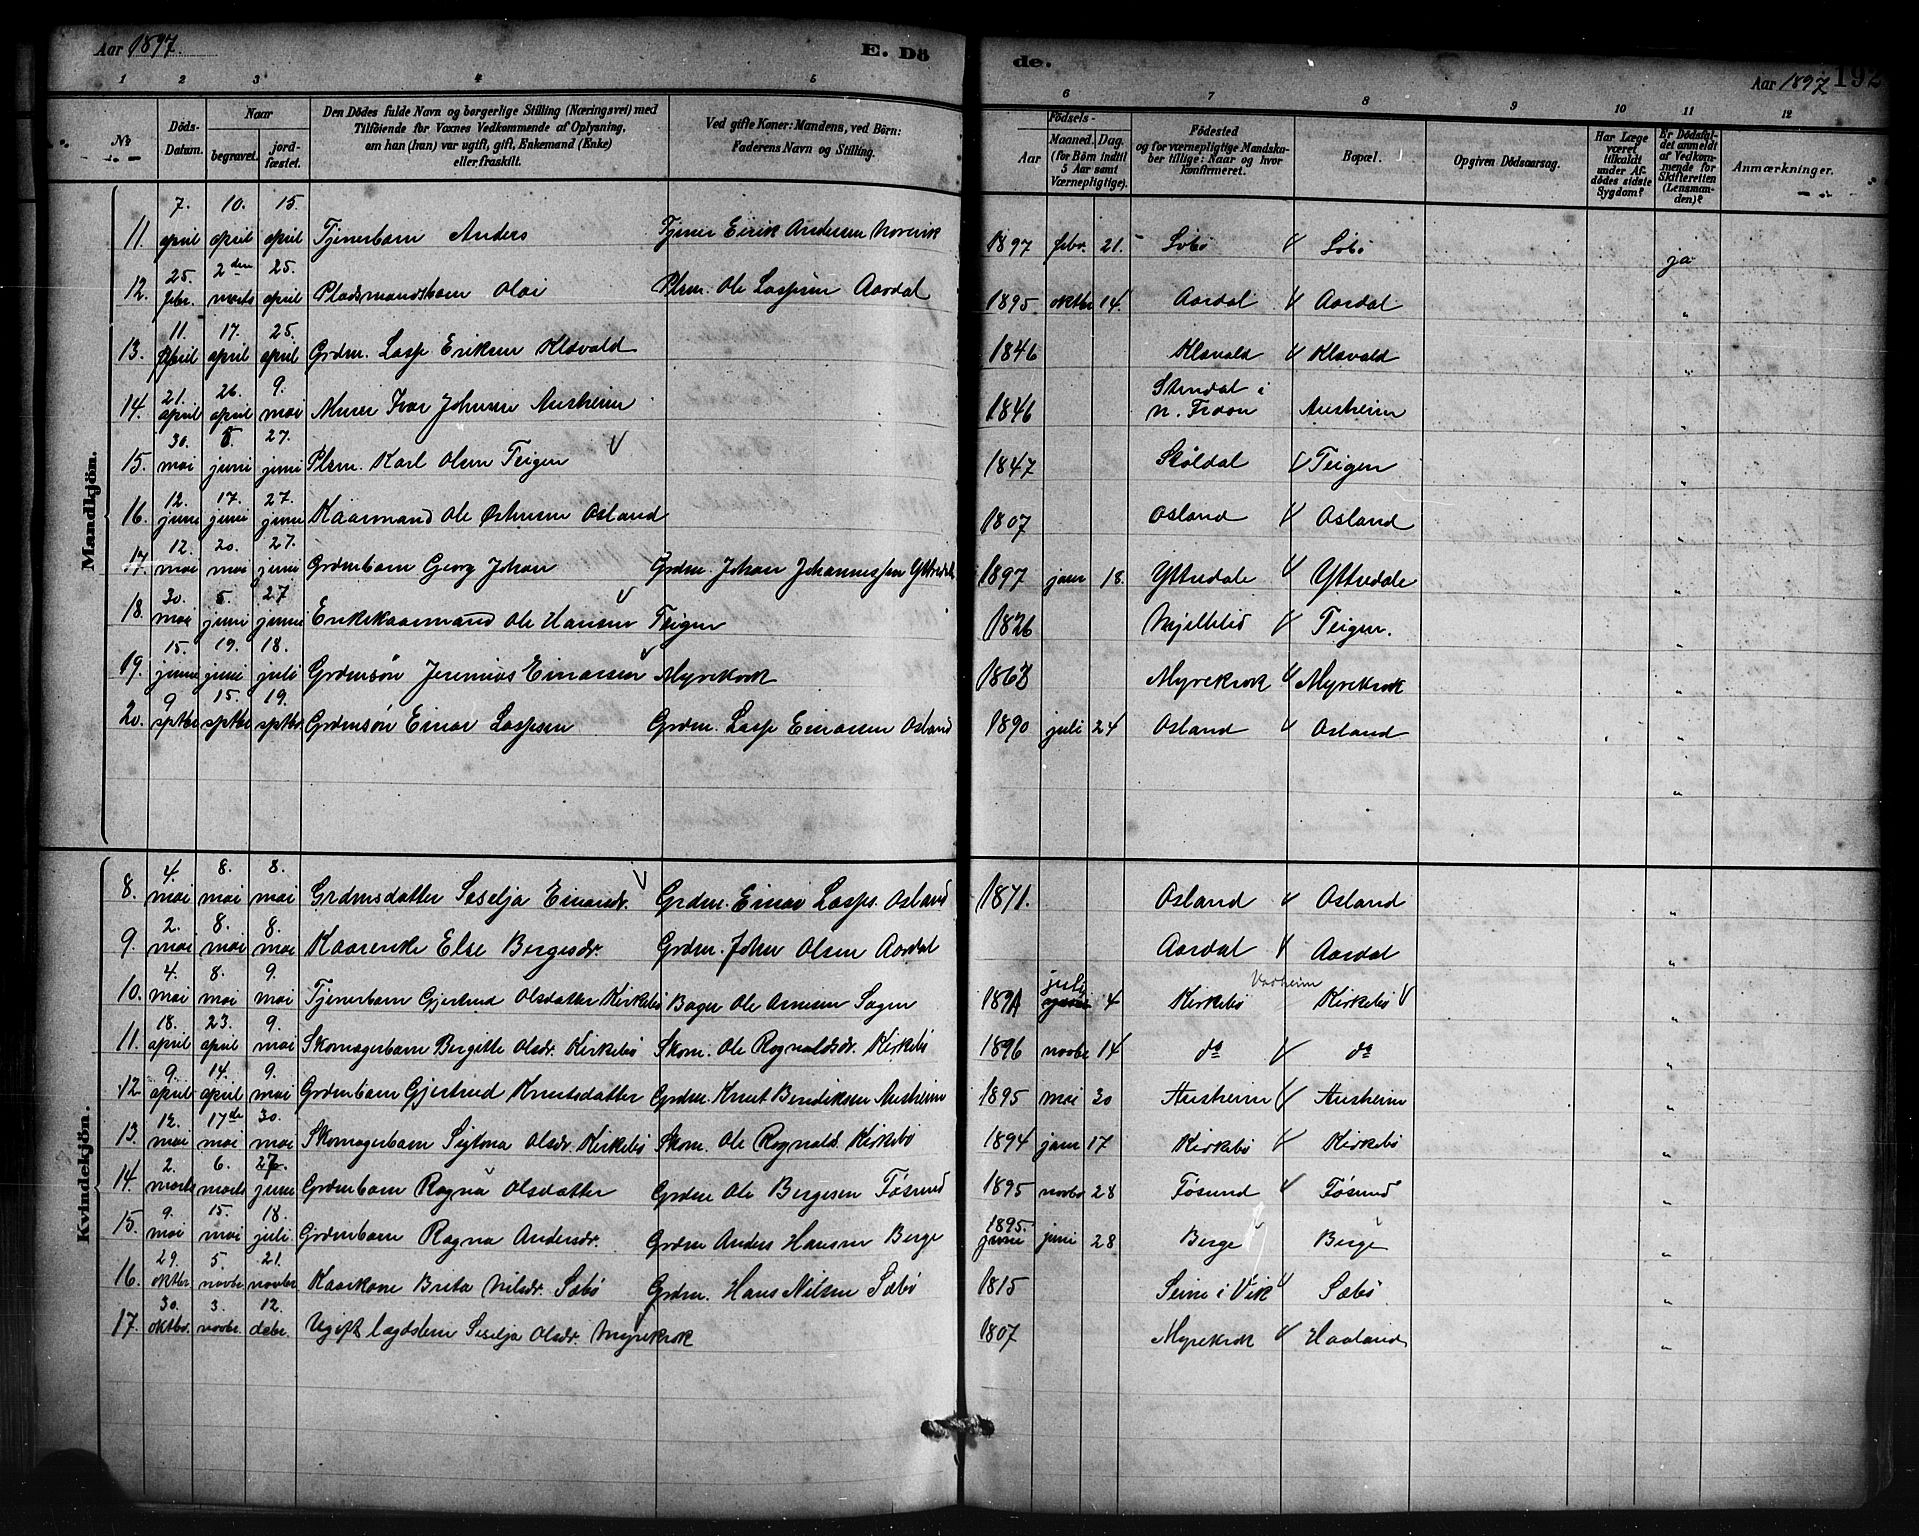 Aar 1897. E. Dö
de. Aar 1897 192
1 2 3 4 5 6 7 8 9 10 11 12
No
Döds-Datum.
Naar
begravet.
jord-fæstet.
Den Dödes fulde Navn og borgerlige Stilling (Næringsvei) med
Tilföiende for Voxnes Vedkommende af Oplysning,
om han (hun) var ugift, gift, Enkemand (Enke)
eller fraskilt.
Ved gifte Koner: Mandens, ved Börn:
Faderens Navn og Stilling.
Födsels-
Aar
Maaned. Dag.
(for Börn indtil
5 Aar samt
Værnepligtige).
Födested
og for værnepligtige Mandska-
ber tillige: Naar og hvor
konfirmeret.
Bopæl.
Opgiven Dödsaarsag.
Har Læge
været
tilkaldt
under Af-
dödes sidste
Sygdom?
Er Dödsfal-
det anmeldt
af Vedkom-
mende for
Skifteretten
(Lensman-
den)?
Anmærkninger.
Mandkjön.
11. 7. april 10. april 15. april Tjenerbarn Anders Tjener Eirik Andersen 1897 febr. 21. ja
12. 25. febr. 2den marts 25. april Pladsmandsbarn Olai Plsm. Ole Laspsen Aardal 1895 oktbr 14 Aardal Aardal "
13. 11. april 17. april 25. april Grdm. Lasp Eriksen Klævald 1846 Klævald Klævald "
14. 21. april 26. april 9. mai Murer Ivar Johnsen Austreim 1846 i n. Fron Austreim "
15. 30. mai 5. juni 27. juni Plsm. Karl Olsen Teigen 1847 Stöldal Teigen "
16. 12. juni 17. juni 27. juni Kaarmand Ole Østensen Osland 1807 Osland Osland "
17. 12. mai 20. mai 27. juni Grdmbarn Georg Johan Grdm. Johan Johannessen Yttredal 1897 janr 18. Yttredale Yttredale "
18. 30. mai 5. juni 27 juni Enkekaarmand Ole Hansen Teigen 1826 Teigen. "
19. 15. juni 19. juni 18. juli Grdmsøn Jeremias Einarsen Myrekrok 1863 Myrekrok Myrekrok "
20. 9 sptbr 15. sptbr 19. sptbr Grdmsøn Einar Laspsen Grdm. Lasp Einarsen Osland 1890 juli 24 Osland Osland "
Kvindekjön.
8. 4. mai 8. mai 8. mai Grdmsdatter Seselja Einarsdr. Grdm. Einar Lasps. Osland 1871. Osland Osland "
9. 2. mai 8. mai 8. mai Kaarenke Else Bergesdr. Grdm. Johan Olsen Aardal Aardal Aardal "
10. 4. mai 8. mai 9. mai Tjenerbarn Gjertrud Olsdatter Kirkebø Bager Ole Arnesen Sagen 1891 juli 4 Kirkebø Vadheim Kirkebø "
11. 18. april 23. april 9. mai Skomagerbarn Bergitte Olsdr. Kirkebø Skom. Ole Rognaldsdr. Kirkebø 1896 novbr 14 do do "
12. 9. april 14. april 9. mai Grdmbarn Gjertrud Knutsdatter Grdm. Knut Bendiksen Austreim 1895 mai 30 Austreim Austreim "
13. 12. mai 17de mai 30. mai Skomagerbarn Olsdr. Kirkebø Skom. Ole Rognalds. Kirkebø 1894 janr 17 Kirkebø Kirkebø "
14. 2. marts 6. marts 27. juni Grdmbarn Ragna Olsdatter Grdm Ole Bergesen Føsund 1895 novbr 28 Føsund Føsund "
15. 9. mai 15. mai 18. juli Grdmbarn Ragna Andersdr. Grdm Anders Hansen Berge 1895. juni juni 28 Berge Berge "
16. 29. oktbr. 5. novbr 21. novbr Kaarkone Brita Nilsdr. Sæbø Grdm. Hans Nilsen Sæbø 1815 Seim i Vik Sæbø "
17. 30. oktbr. 3. novbr. 12. debr. Ugift lægdslem Seselja Olsdr. Myrekrok 1807 Myrekrok Haaland "